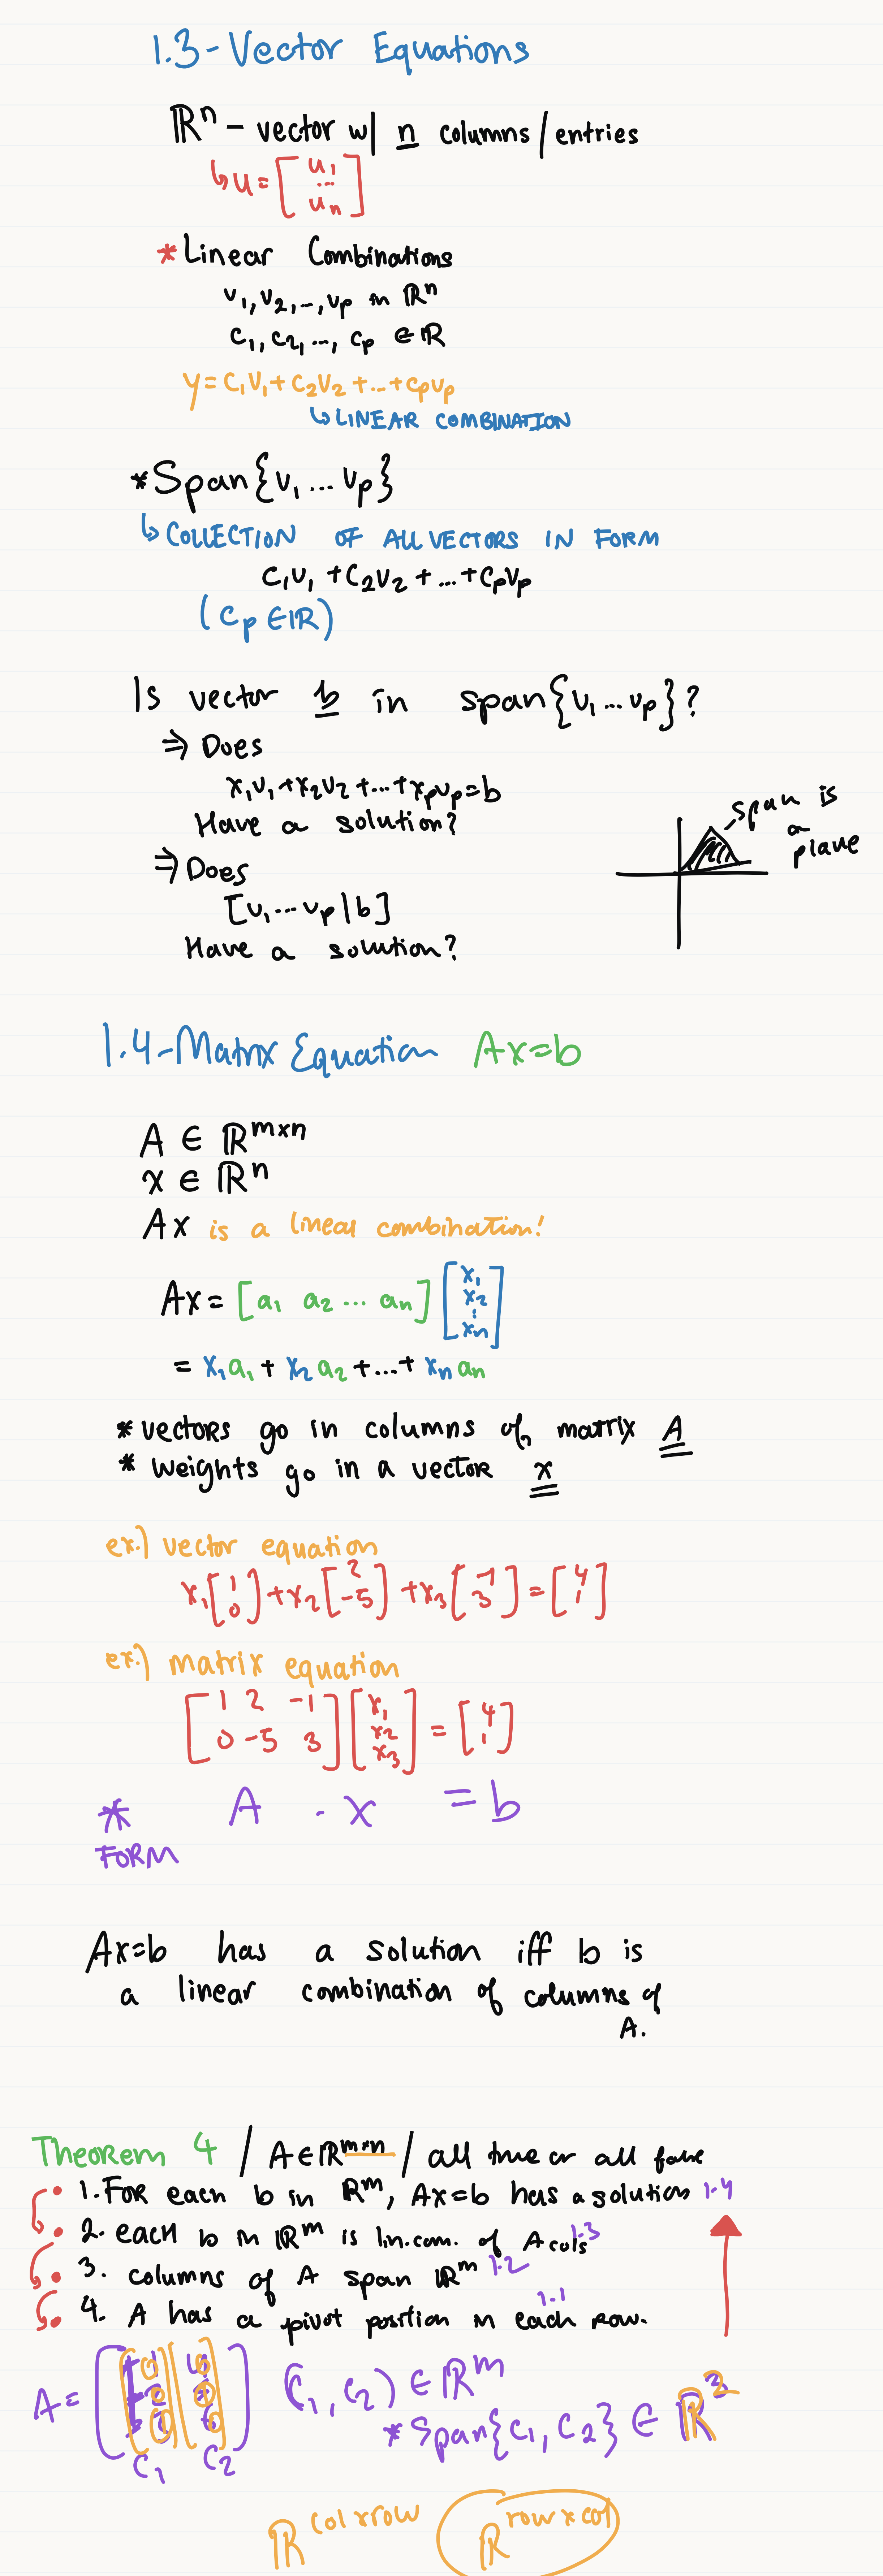 1.3 - Vector Equations
ℝⁿ - vector w/ n columns / entries
↳ u = [u₁ ... uₙ]
* Linear Combinations
v₁, v₂, ..., vₚ in ℝⁿ
c₁, c₂, ..., cₚ ∈ ℝ
y = c₁v₁ + c₂v₂ + ... + cₚvₚ
↳ LINEAR COMBINATION
* Span{v₁ ... vₚ}
↳ COLLECTION OF ALL VECTORS IN FORM
c₁v₁ + c₂v₂ + ... + cₚvₚ
(cₚ ∈ ℝ)
Is vector b in span{v₁ ... vₚ}?
⇒ Does
x₁v₁ + x₂v₂ + ... + xₚvₚ = b
Have a solution?
span is
a
plane
⇒ Does
[v₁ ... vₚ | b]
Have a solution?
1.4 - Matrix Equation Ax = b
A ∈ ℝᵐˣⁿ
x ∈ ℝⁿ
Ax is a linear combination!
Ax = [a₁ a₂ ... aₙ] [x₁ x₂ : xₙ]
= x₁a₁ + x₂a₂ + ... + xₙaₙ
* vectors go in columns of matrix A
* weights go in a vector x
ex.) vector equation
x₁[1 0] + x₂[2 -5] + x₃[-1 3] = [4 1]
ex.) matrix equation
[1 2 -1
0 -5 3] [x₁ x₂ x₃] = [4 1]
* A · x = b
FORM
Ax=b has a solution iff b is
a linear combination of columns of
A.
Theorem 4 / A∈ℝᵐˣⁿ / all true or all false
• 1. For each b in ℝᵐ, Ax=b has a solution 1.4
• 2. each b in ℝᵐ is lin.com. of A cols 1.3
• 3. columns of A span ℝᵐ 1.2
• 4. A has a pivot position in each row. 1.1
A = (c₁, c₂) ∈ ℝᵐ
* span{c₁, c₂} ∈ ℝ
c₁ c₂
ℝ^col x row ℝ^row x col